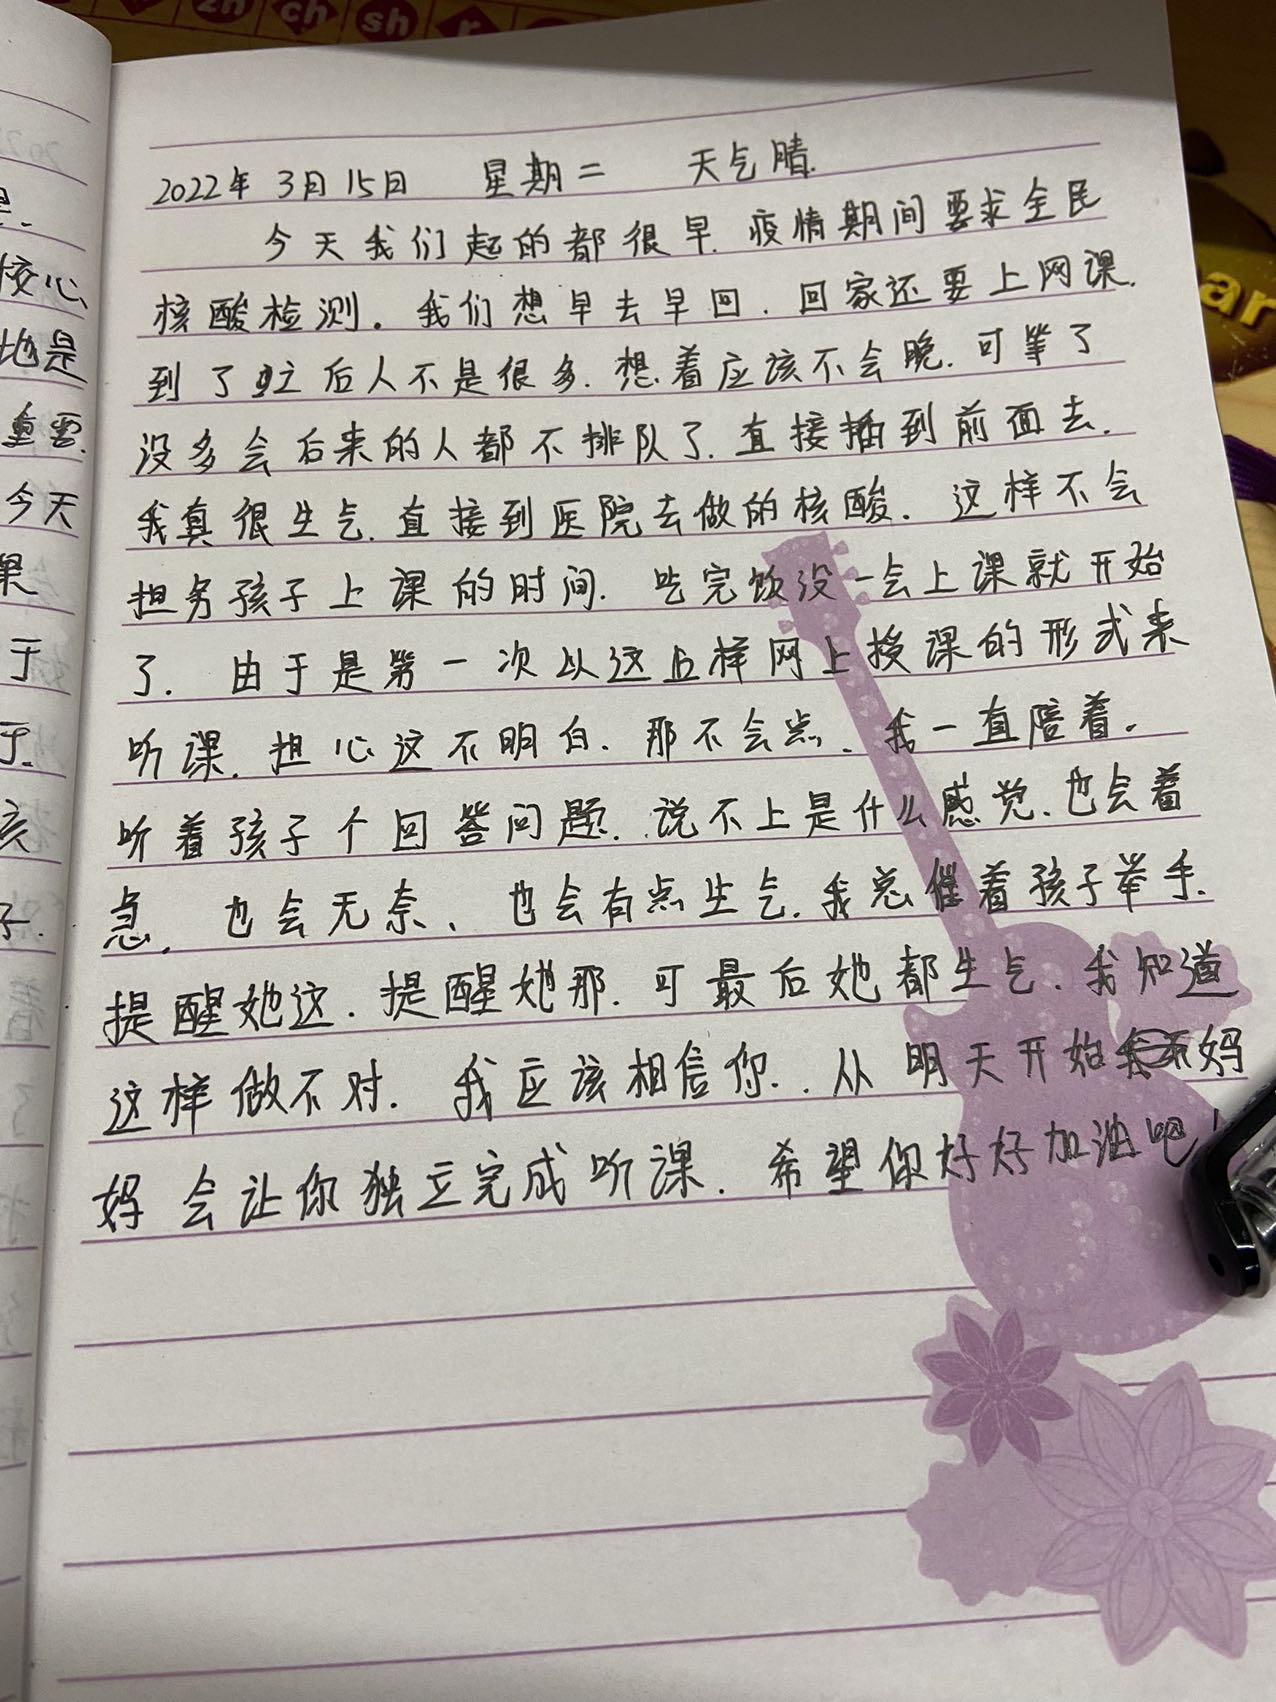 zh ch sh r
ar
是.
核心
地是
重要.
今天
果
于
于.
孩
子.
2022年 3月15日 星期二 天气晴.
今天我们起的都很早.疫情期间要求全民
核酸检测。我们想早去早回.回家还要上网课.
到了 之后人不是很多.想着应该不会晚.可等了
没多会后来的人都不排队了.直接插到前面去.
我真很生气.直接到医院去做的核酸.这样不会
担务孩子上课的时间.吃完饭没一会上课就开始
了.由于是第一次以这 样网上授课的形式来
听课.担心这不明白.那不会点、我一直陪着。
听着孩子个回答问题.说不上是什么感觉.也会着
急.也会无奈、也会有点生气.我总催着孩子举手.
提醒她这.提醒她那.可最后她都生气.我知道
这样做不对.我应该相信你..从明天开始 妈
妈会让你独立完成听课.希望你好好加油吧!